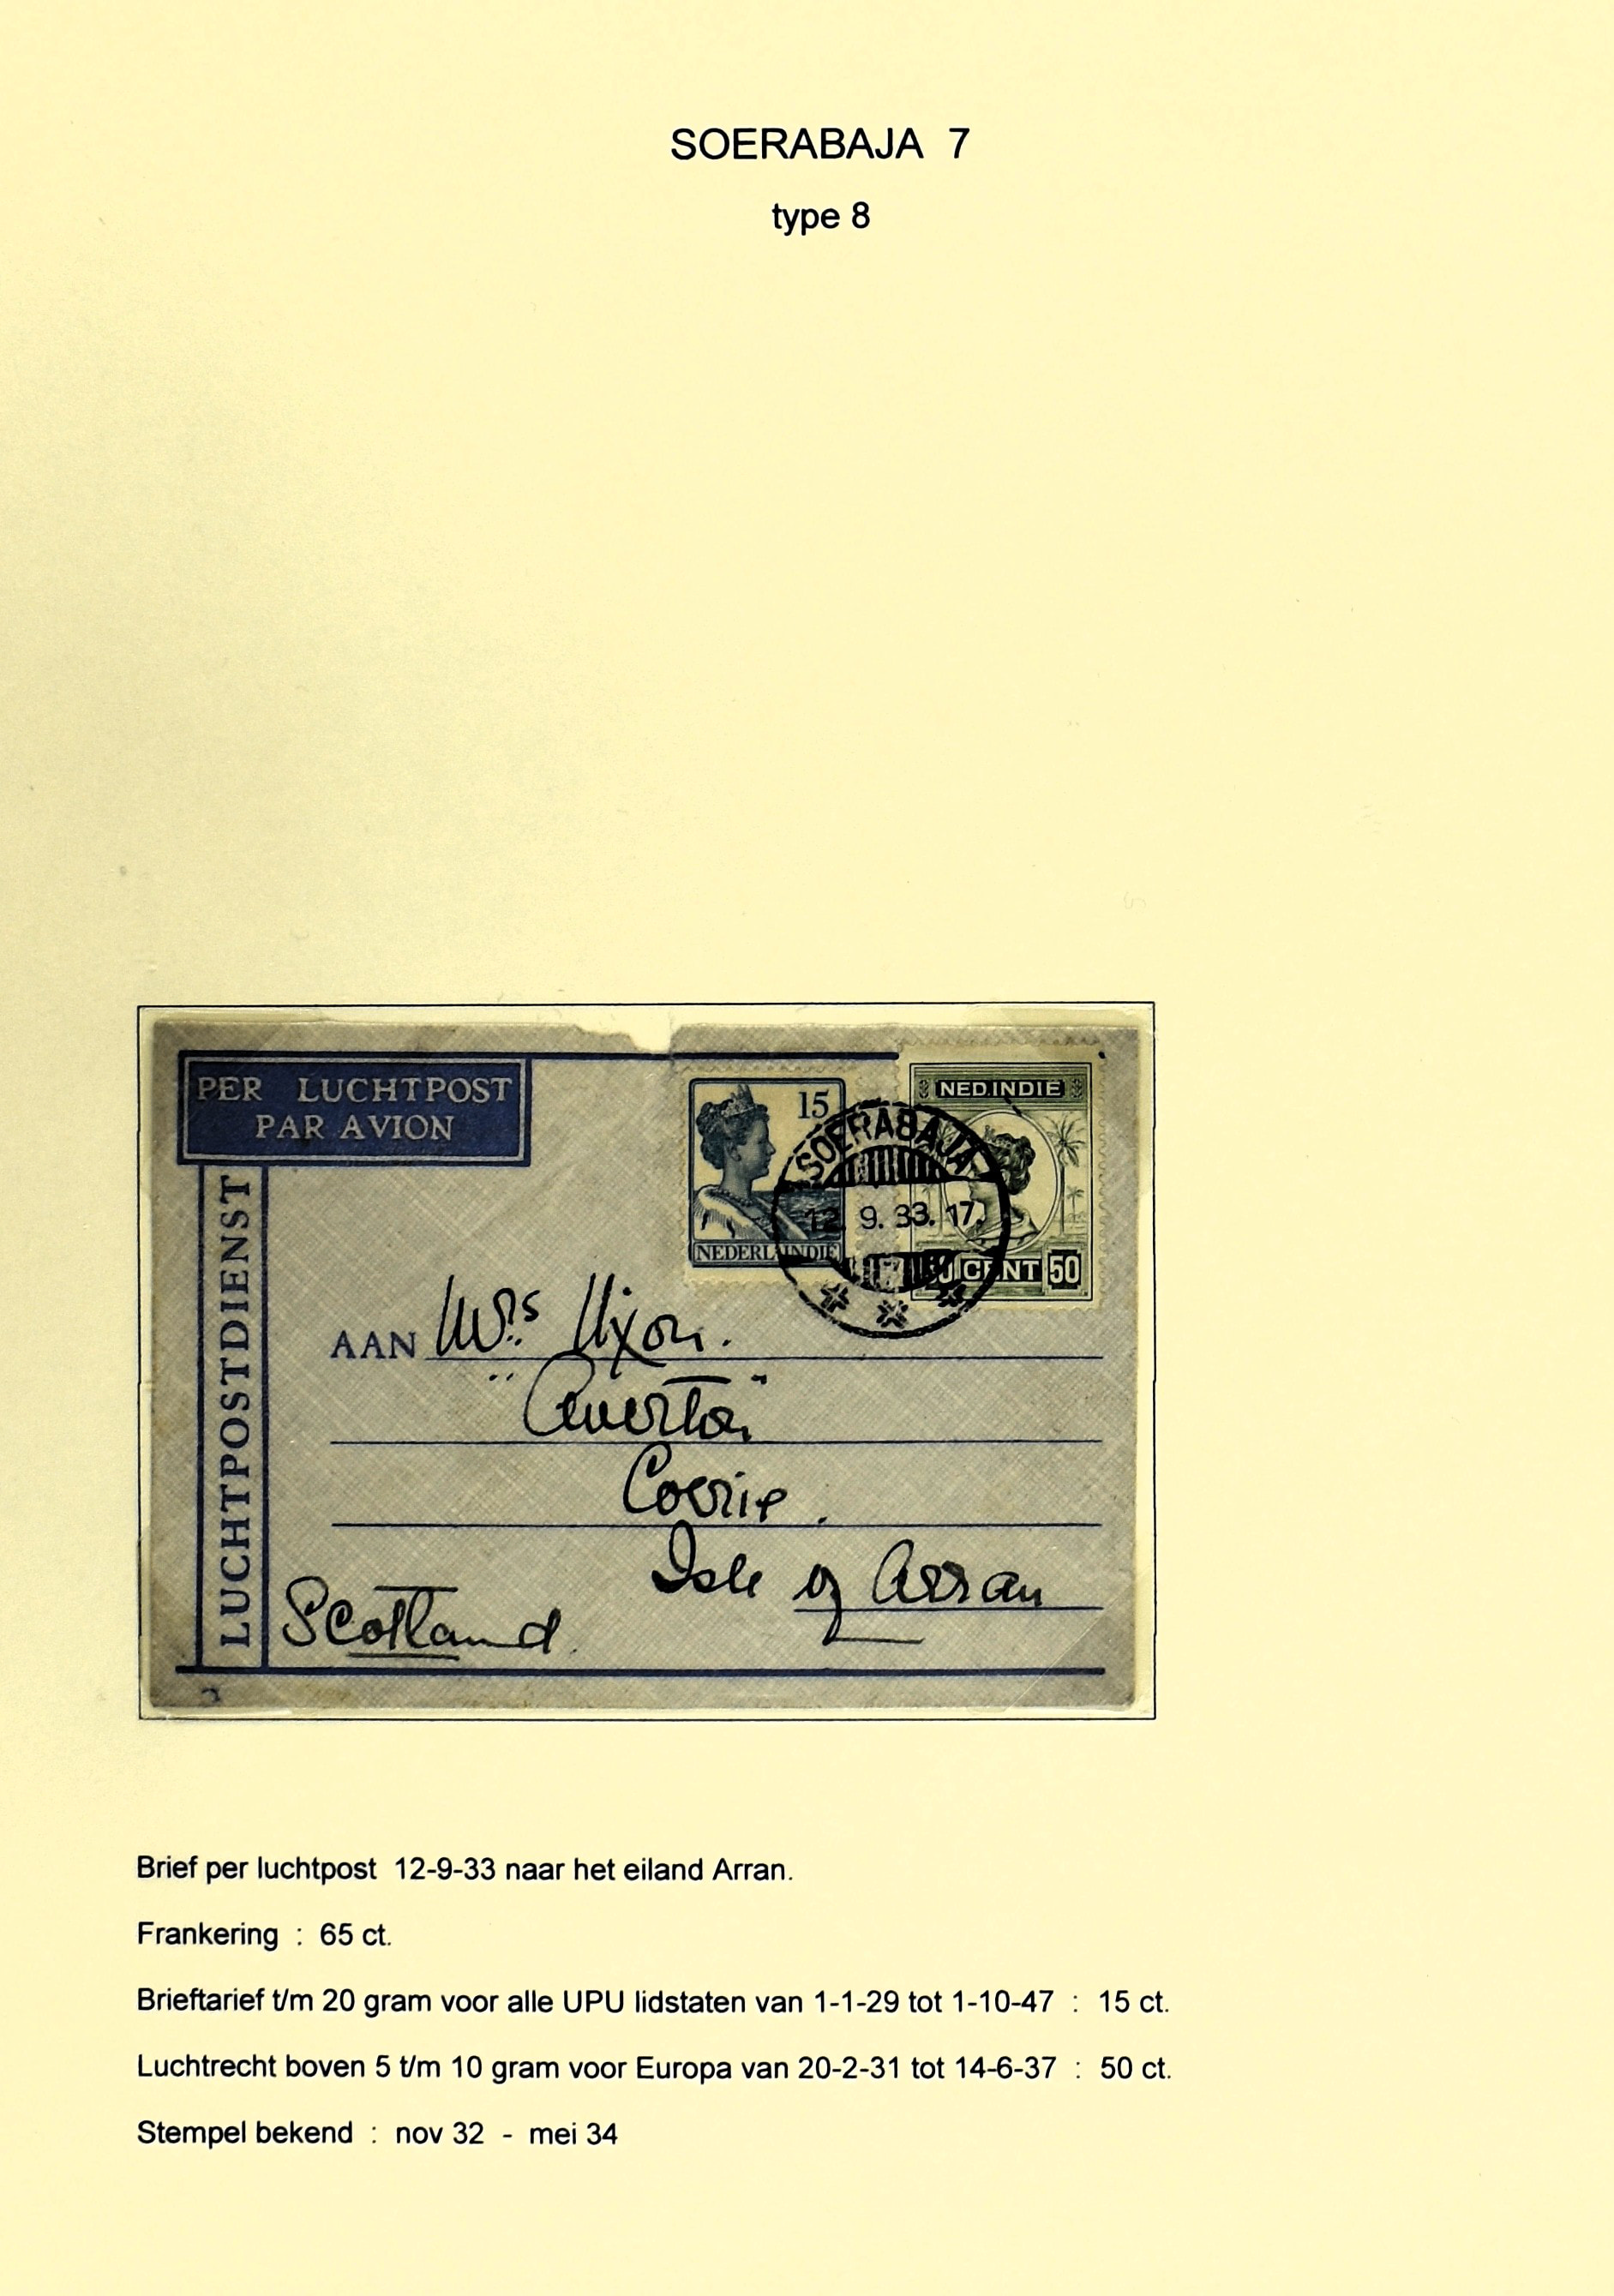 SOERABAJA 7
type 8
PER LUCHTPOST
PAR AVION
LUCHTPOSTDIENST
15
NEDERL. INDIË
NED. INDIË
50 CENT 50
SOERABAJA
12. 9. 33. 17.
AAN Mrs. Nixon.
Corrie.
Isle of Arran
Scotland.
Brief per luchtpost 12-9-33 naar het eiland Arran.
Frankering : 65 ct.
Brieftarief t/m 20 gram voor alle UPU lidstaten van 1-1-29 tot 1-10-47 : 15 ct.
Luchtrecht boven 5 t/m 10 gram voor Europa van 20-2-31 tot 14-6-37 : 50 ct.
Stempel bekend : nov 32 - mei 34